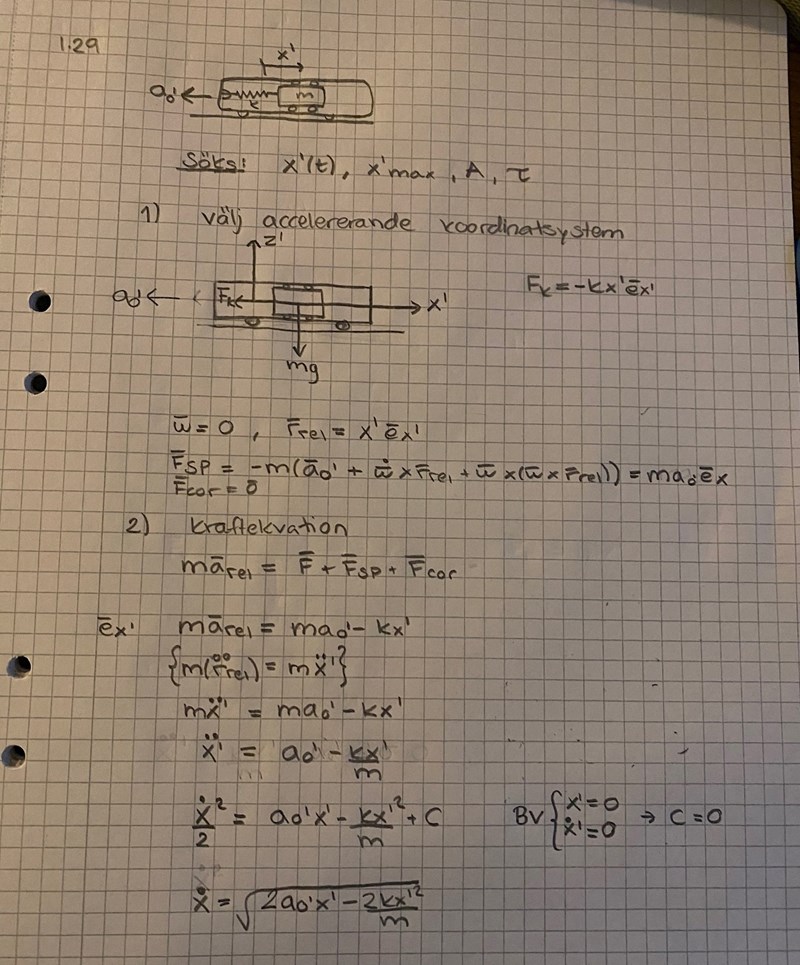 1.29
x'
a₀' ← k m
Söks: x'(t), x'max, A, τ
1) välj accelererande koordinatsystem
z'
a₀' ← F̄ₖ x' Fₖ = -kx'ēx'
mg
ω̄ = 0, r̄rel = x'ēx'
F̄sp = -m(ā₀' + ω̄̇ × r̄rel + ω̄ × (ω̄ × r̄rel)) = ma₀ēx
F̄cor = 0̄
2) kraftekvation
mārel = F̄ + F̄sp + F̄cor
ēx' mārel = ma₀' - kx'
{m(r̊̊rel) = mẍ'}
mẍ' = ma₀' - kx'
ẍ' = a₀' - kx'/m
ẋ²/2 = a₀'x' - kx'²/m + C BV { x'=0 ẋ'=0 → C=0
ẋ = √(2a₀'x' - 2kx'²/m)